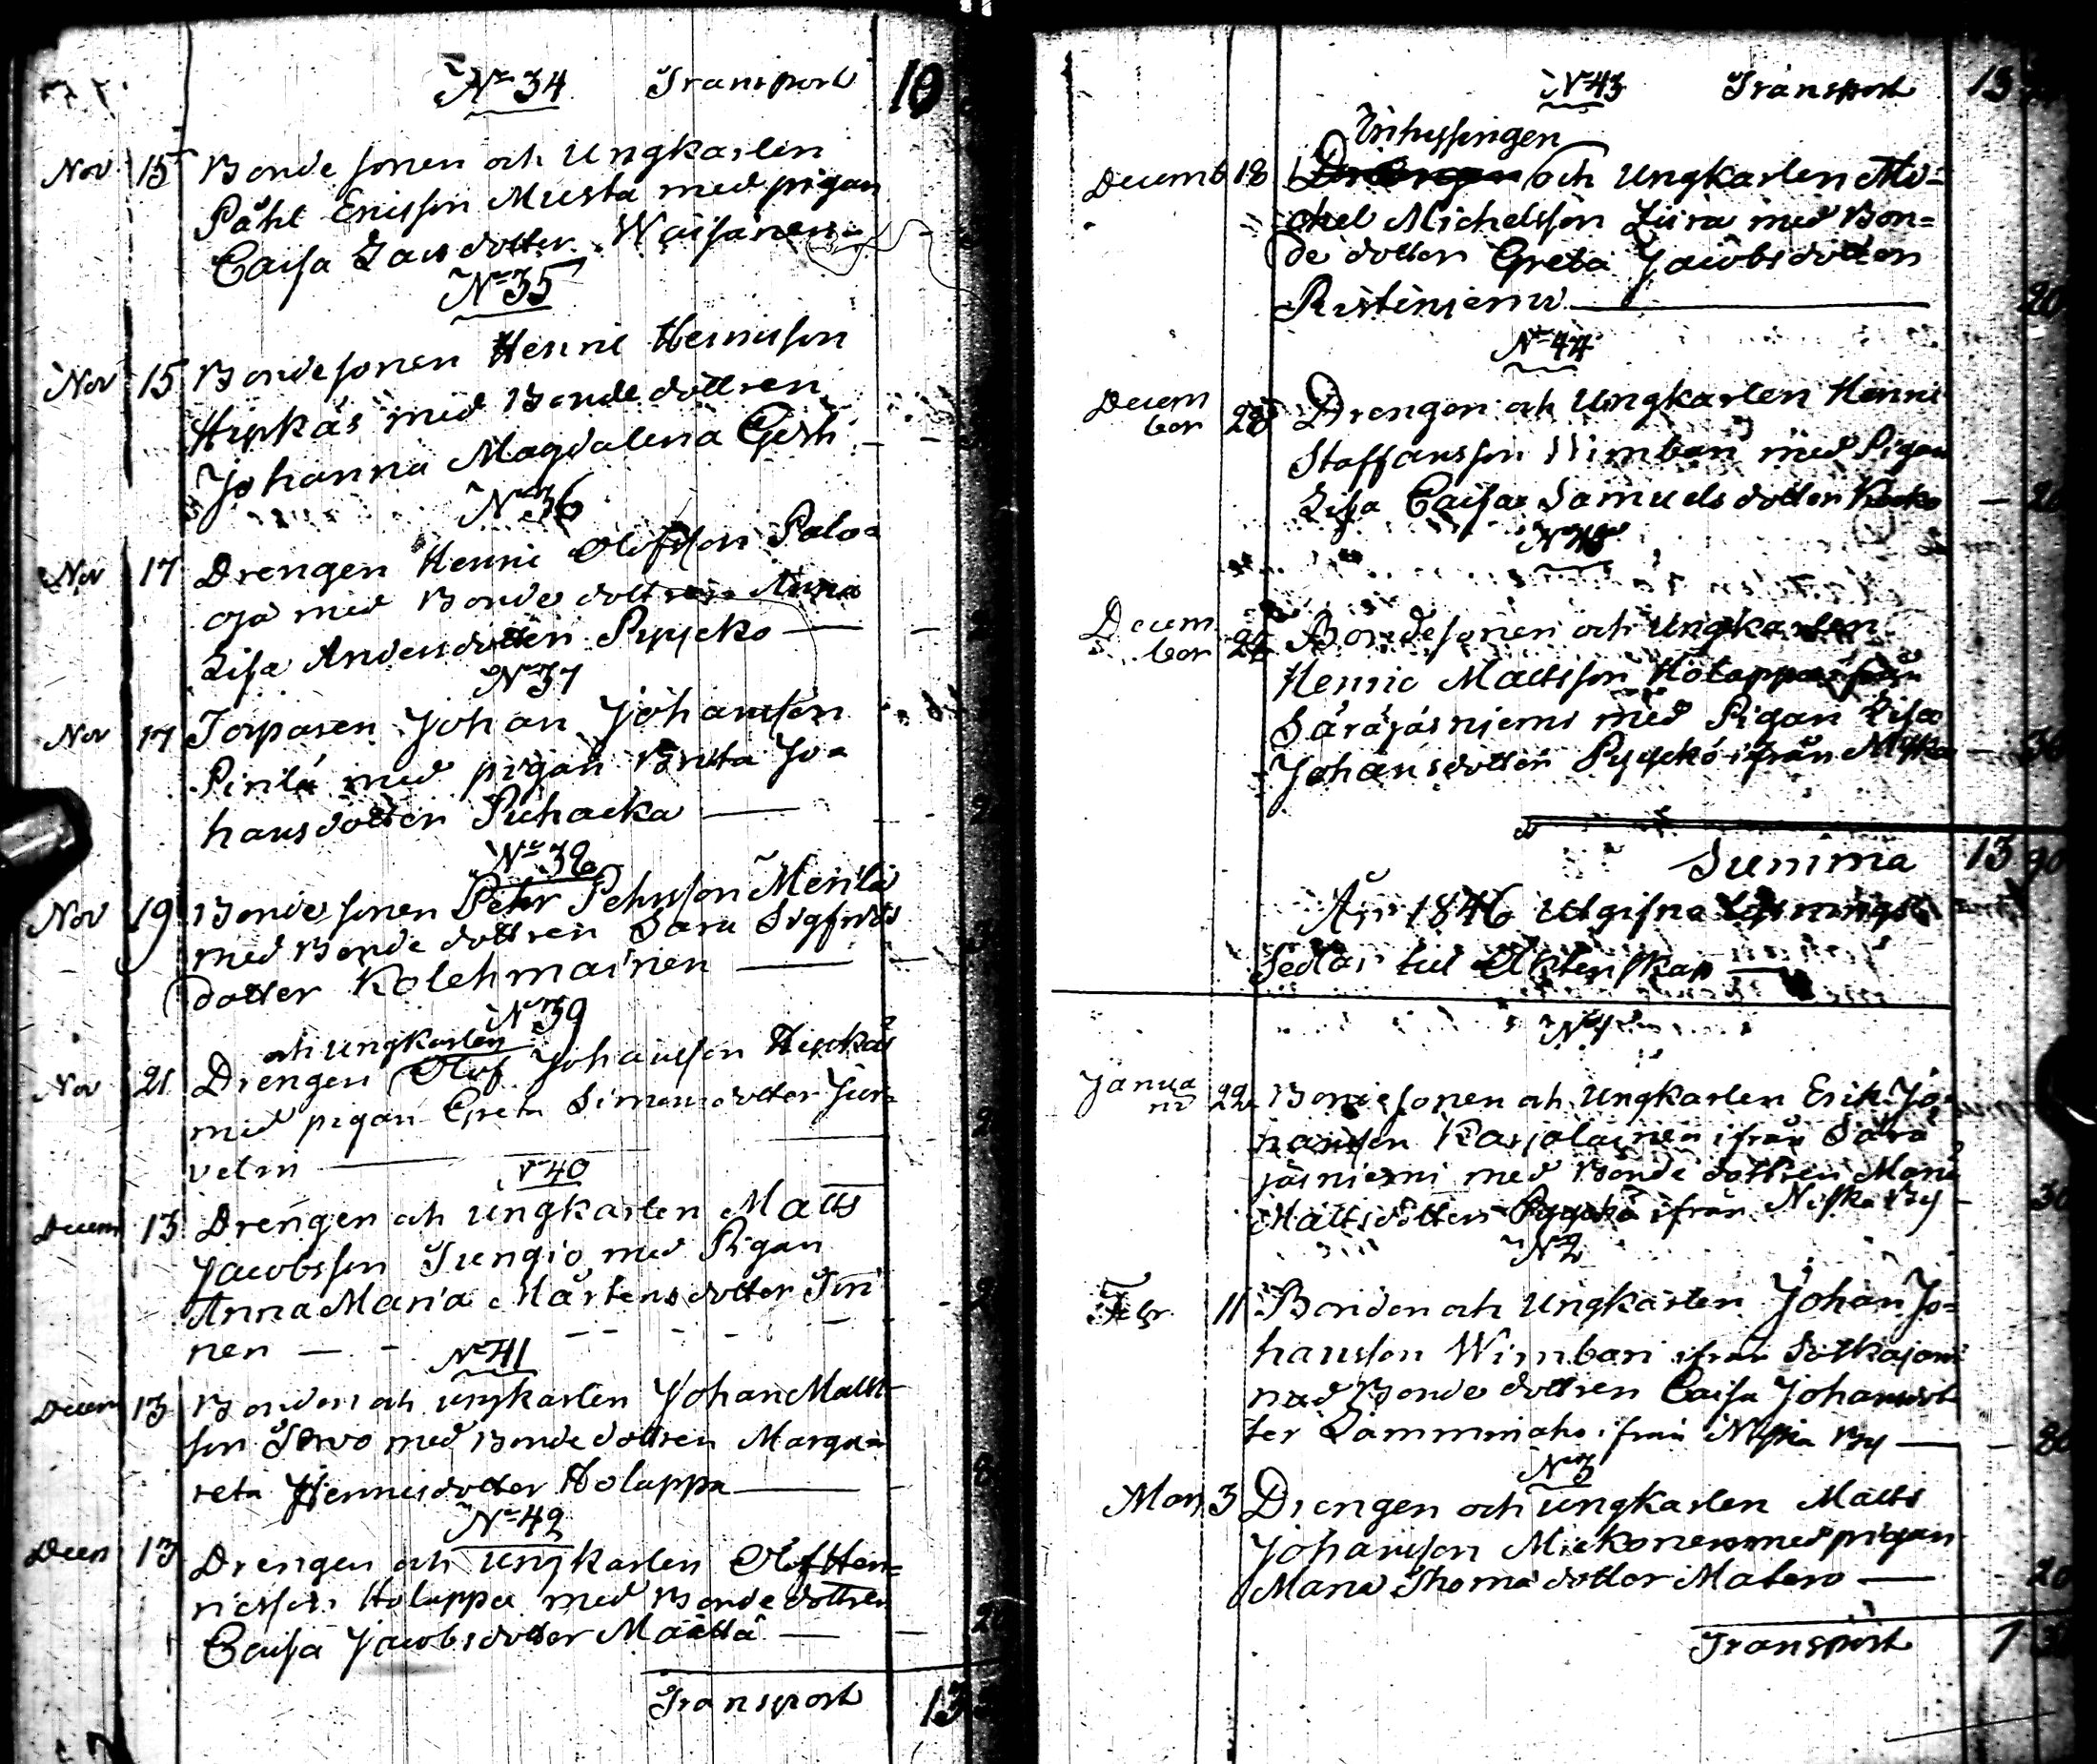 No 34 Transport 10
Nov 15 Bonde sonen och Ungkarlen
Påhl Ericsson Musta med pigan
Caisa Larsdotter Waisanen
No 35
Nov 15 Bondesonen Henric Henricsson
Hipkäs med Bonde dottren
Johanna Magdalena Gerh - -
No 36
Nov 17 Drengen Henric Olofsson Palo=
oja med Bonde dottren Anna
Lisa Andersdotter Pyycko — -
No 37
Nov 17 Torparen Johan Johansson
Pirilä med pigan Brita Jo=
hansdotter Puhacka — 2
No 38
Nov 19 Bonde sonen Peter Pehrsson Merilä
med Bonde dottren Sara Sigfrids
dotter Kolehmainen — -
No 39
och ungkarlen
Nov 21 Drengen Olof Johansson Hipkäs
med pigan Greta Simonsdotter Jur= 2
velin —
No 40
Decem 13 Drengen och ungkarlen Matts
Jacobsson Jungio med Pigan
Anna Maria Mårtensdotter - 2
nen — - - - - -
No 41
Decem 13 Bonden och ungkarlen Johan Matts
son Servo med Bonde dottren Marga=
reta Henricsdotter Holappa — -
No 42
Decem 13 Drengen och ungkarlen Olof Hen=
ricsson Holappa med Bonde dottren
Caisa Jacobsdotter Määttä — - 20
Transport 13
No 43 Transport 13
Inhysingen
Decemb 18 och Ungkarlen Mi=
chel Michelsson Lura med Bon=
de dotter Greta Jacobsdotter
Ristiniemi — 20
No 44
Decem
ber 26 Drengen och Ungkarlen Henric
Staffansson Wimbari med Pigan
Lisa Caisa Samuelsdotter — 20
No 45
Decem
ber 26 Bondesonen och Ungkarlen
Henric Mattsson Holappa ifrån
Säräjäsniemi med Pigan Lisa
Johansdotter Pyyckö ifrån Niska — 30
Summa 13 90
År 1846 Utgifne Lysnings
Sedlar till Äktenskap —
No 1
Janua
ri 22 Bondesonen och Ungkarlen Erik Jo=
hansson Karjalainen ifrån Särä
jäsniemi med Bonde dottren Maria
Mattsdotter Pyyckö ifrån Niska By - 30
No 2
Febr. 11 Bonden och Ungkarlen Johan Jo=
hansson Wimbari ifrån Sotkajoen
med Bonde dottren Caisa Johansdot
ter Lamminaho ifrån Niska By — -
No 3
Mars 3 Drengen och ungkarlen Matts
Johansson Mickonen med pigan
Maria Thomasdotter Matero — 20
Transport 1